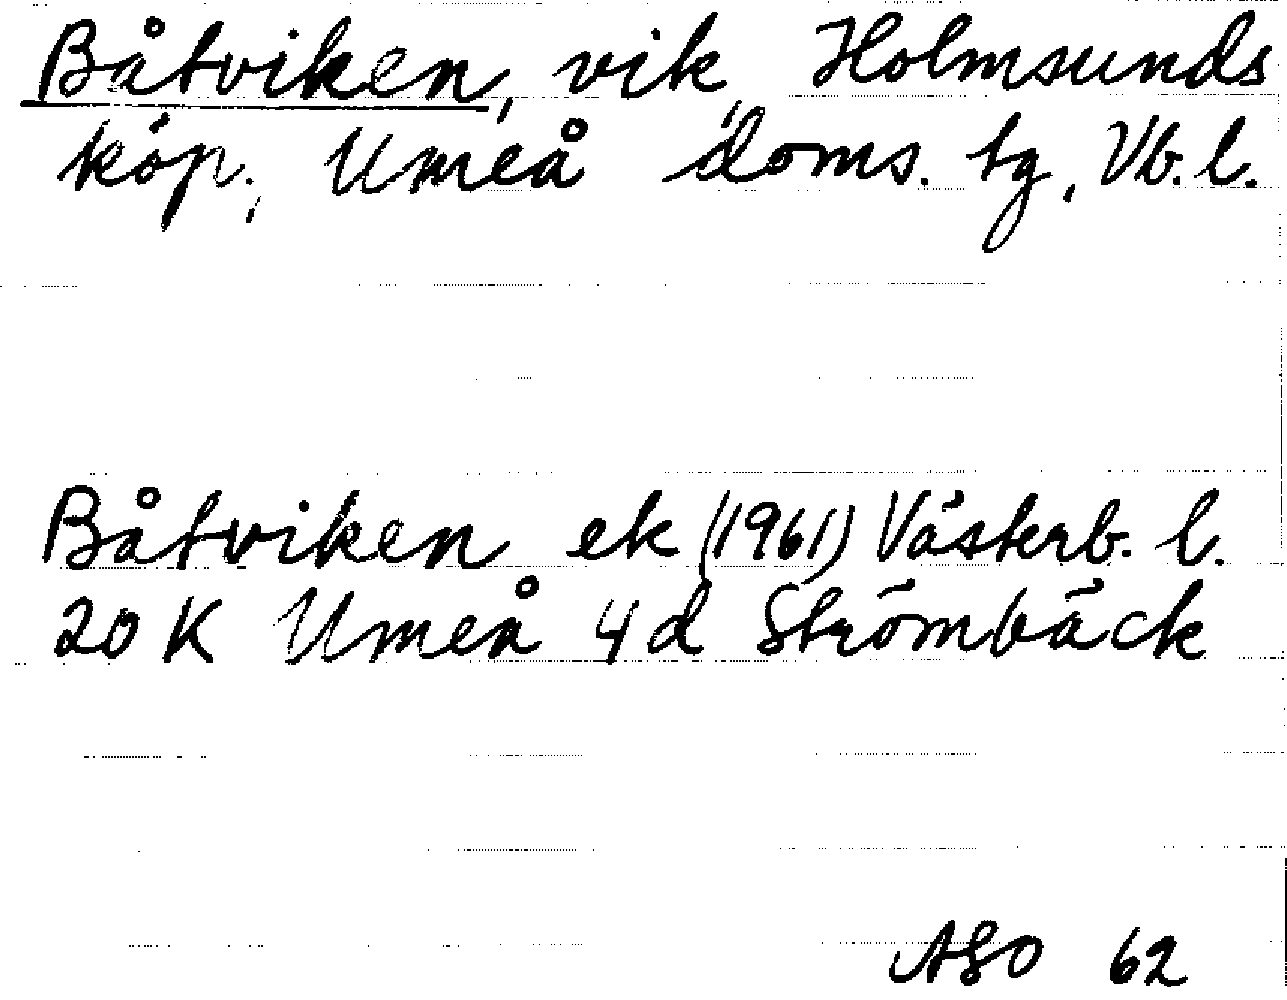 Båtviken, vik, Holmsunds
köp., Umeå doms. tg, Vb. l.
Båtviken ek (1961) Västerb. l.
20 K Umeå 4d Strömbäck
ASO 62